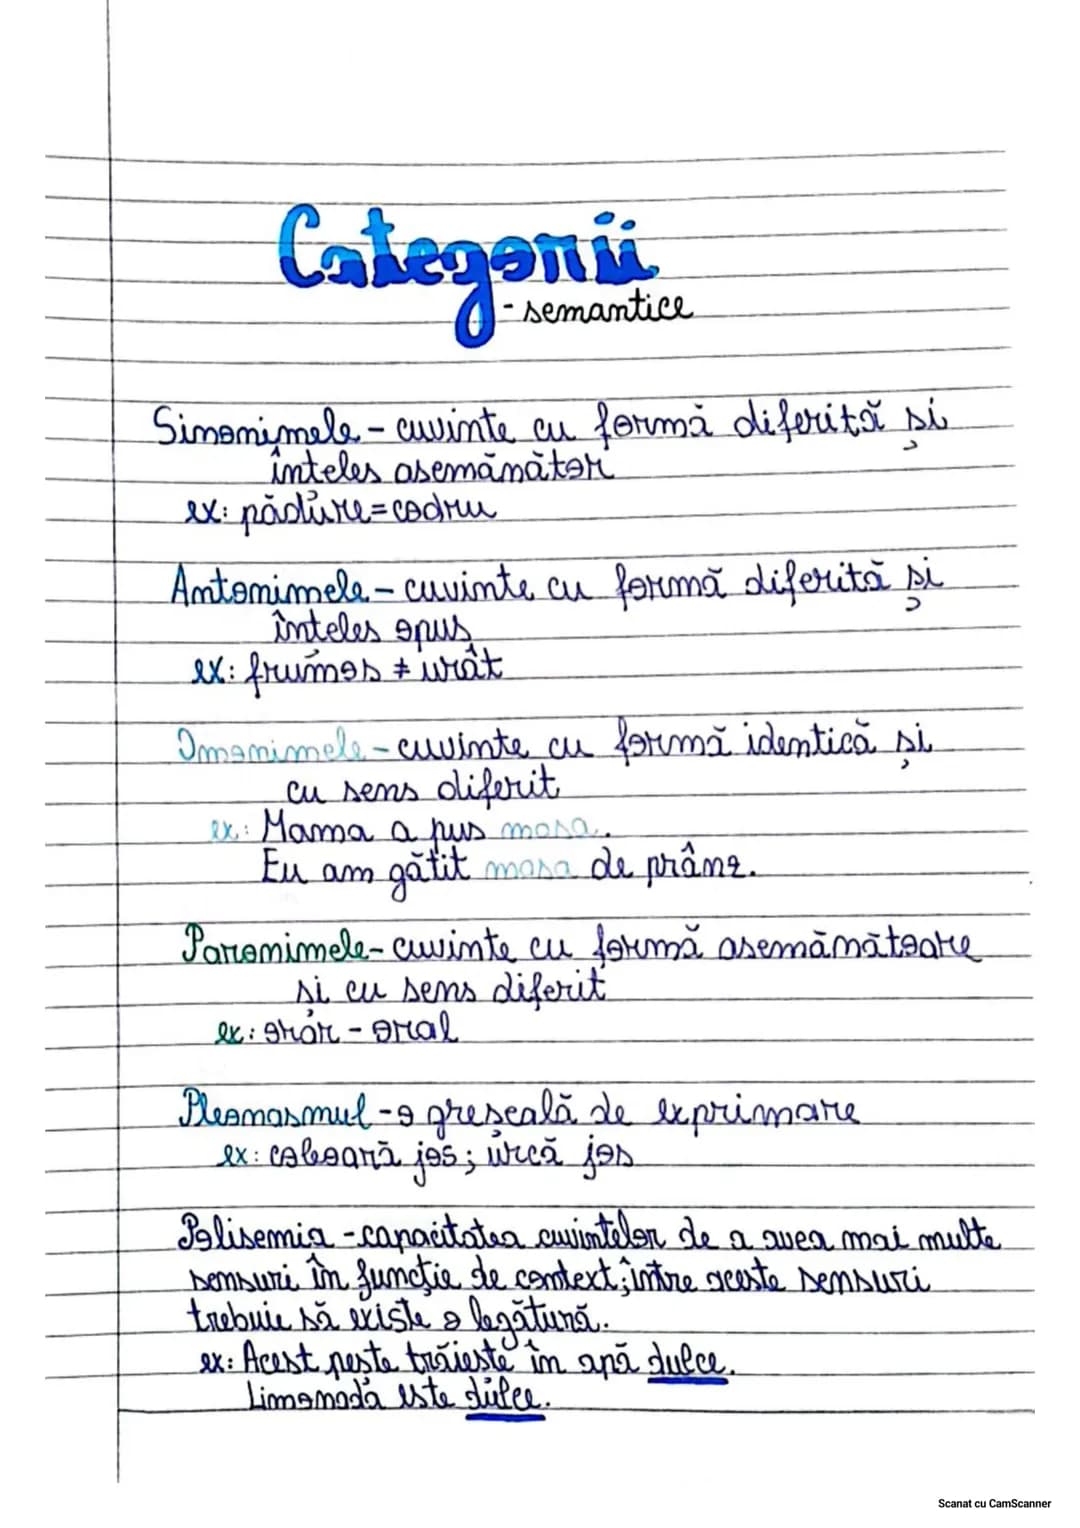 Categorii
- semantice
Sinonimele - cuvinte cu formă diferită și
înteles asemănător
ex: pădure = codru
Antonimele - cuvinte cu formă diferită și
înteles opus
ex: frumos ≠ urât
Omonimele - cuvinte cu formă identică și
cu sens diferit
ex: Mama a pus masa.
Eu am gătit masa de prânz.
Paronimele - cuvinte cu formă asemănătoare
si cu sens diferit
ex: orar - oral
Pleonasmul - o greșeală de exprimare
ex: coboară jos; urcă jos
Polisemia - capacitatea cuvintelor de a avea mai multe
sensuri în funcție de context; între aceste sensuri
trebuie să existe o legătură.
ex: Acest peste trăieste în apă dulce.
Limonada este dulce.
Scanat cu CamScanner